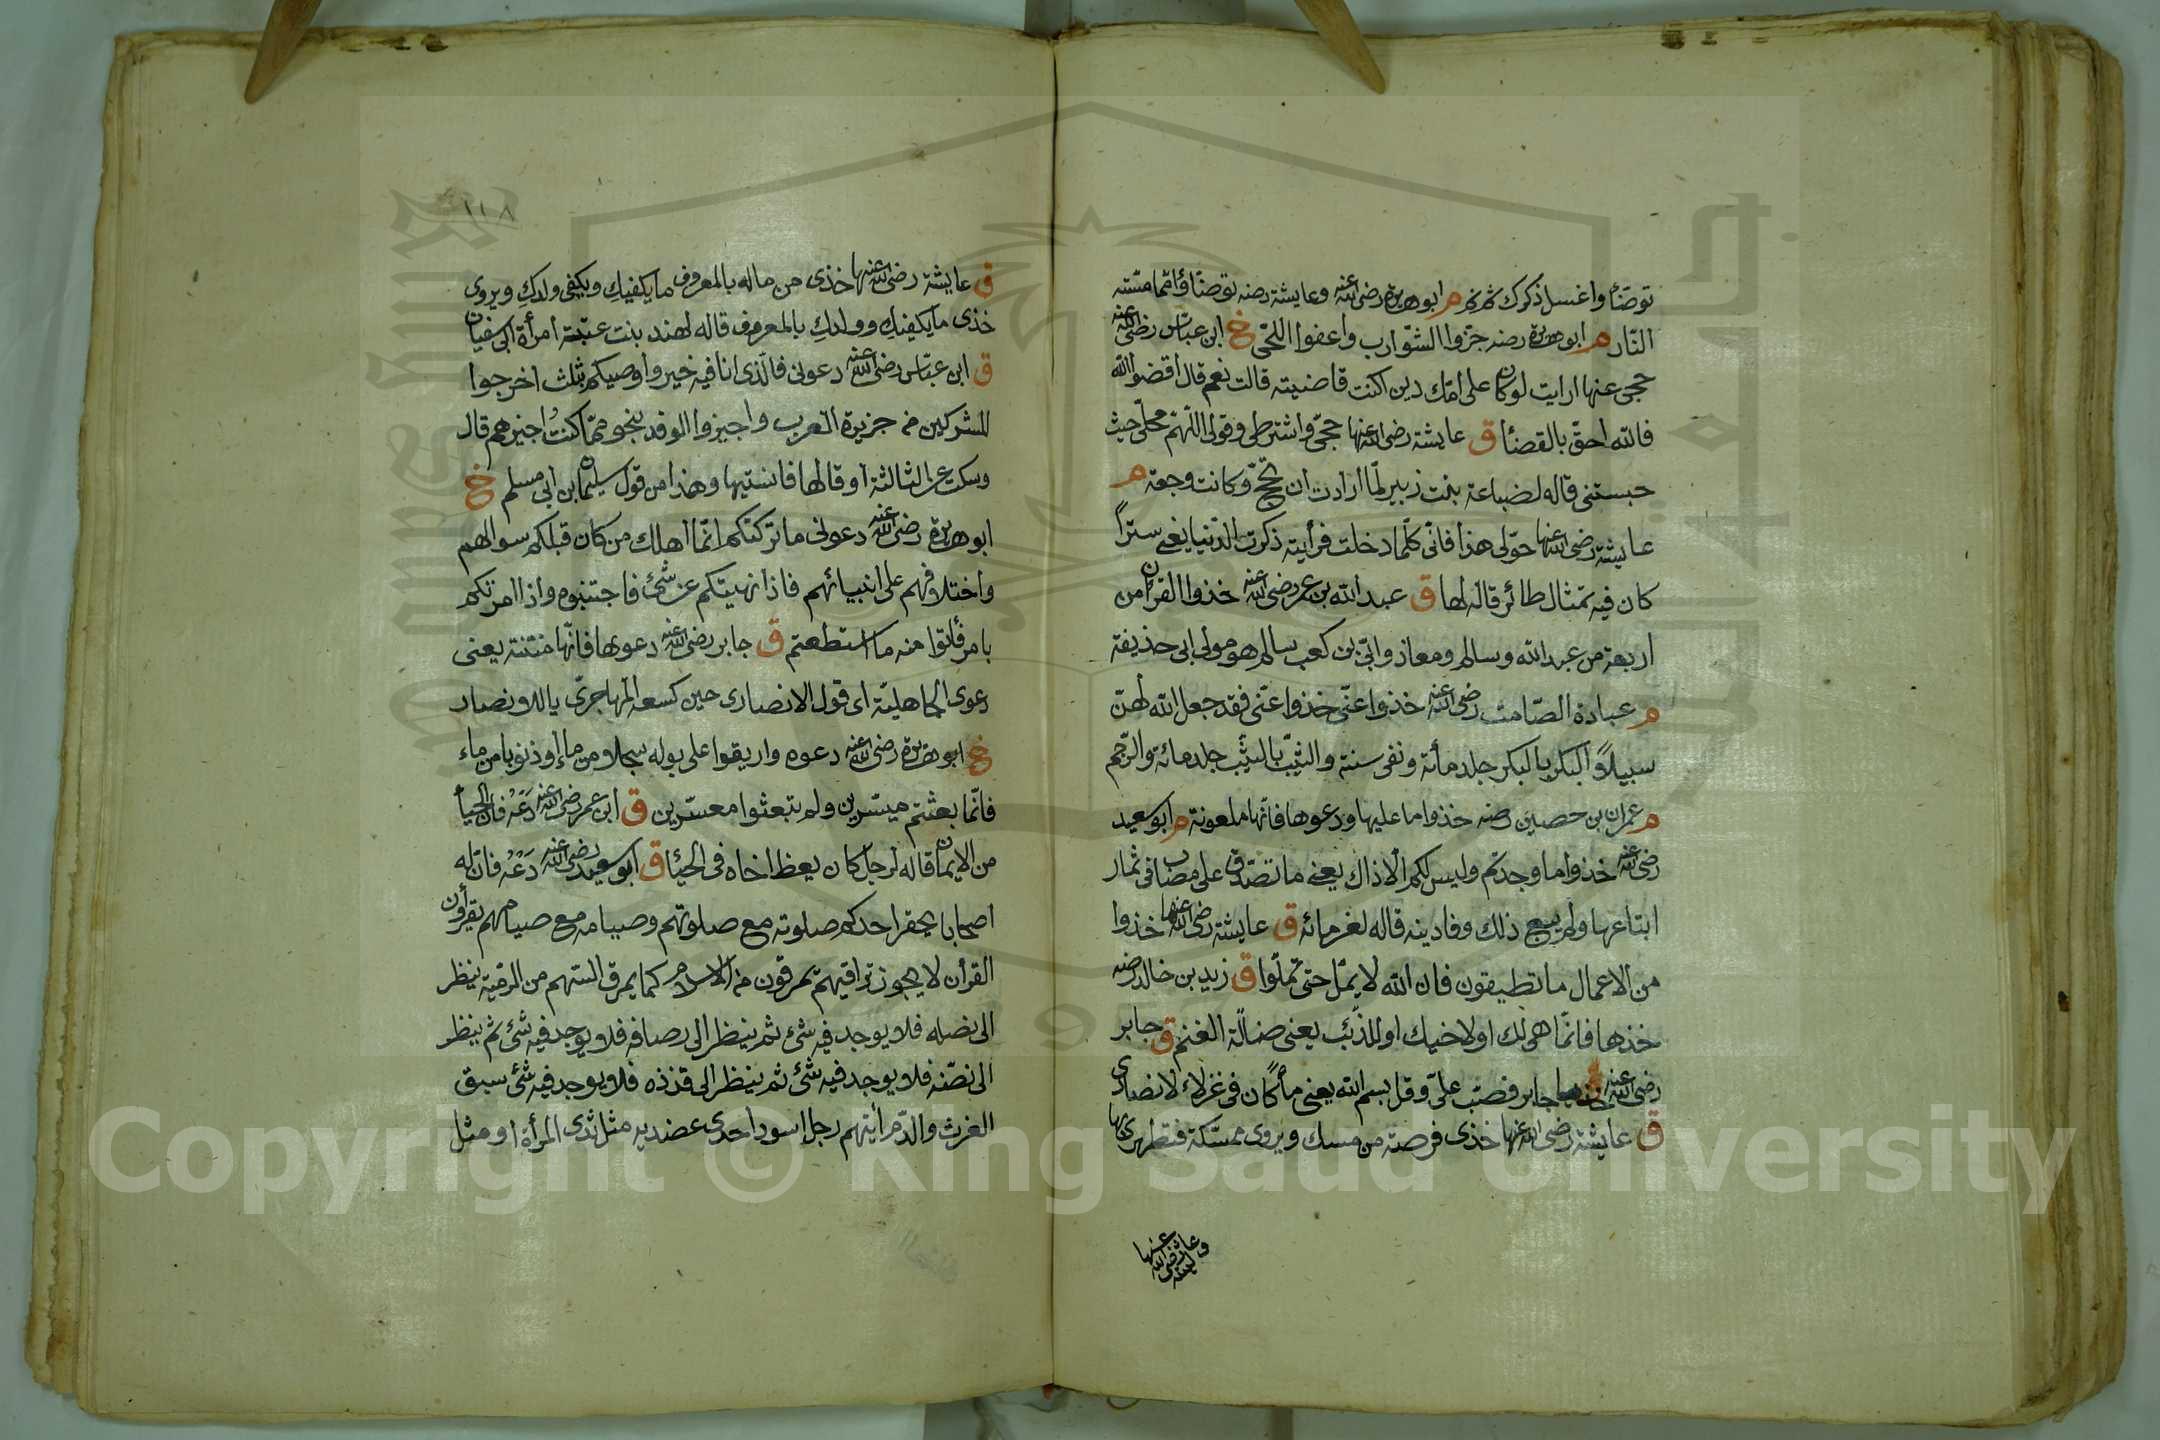 توضأ واغسل ذكرك ثم نم م ابو هريرة رضى الله عنه وعايشة رضه توضأوا مما مسته
النار م ابو هريرة رضه جزوا الشوارب واعفوا اللحى خ ابن عباس رضى الله عنه
حجى عنها ارايت لو كان على امك دين اكنت قاضيته قالت نعم قال اقضوا الله
فالله احق بالقضأ ق عايشة رضى الله عنها حجى واشترطى وقولى اللهم محلى حيث
حبستنى قاله لضباعة بنت زبير لما ارادت ان تحج وكانت وجعة م
عايشة رضى الله عنها حولى هذا فانى كلما دخلت فرأيته ذكرت الدنيا يعنى سترا
كان فيه تمثال طائر قاله لها ق عبد الله بن عمر رضى الله عنه خذوا القرآن من
اربعة من عبد الله وسالم ومعاذ وابى بن كعب سالم هو مولى ابى حذيفة
م عبادة الصامت رضى الله عنه خذوا عنى خذوا عنى فقد جعل الله لهن
سبيلا البكر بالبكر جلد مأئة ونفى سنة والثيب بالثيب جلد مائة والرجم
م عمران بن حصين رضه خذوا ما عليها ودعوها فانها ملعونة م ابو سعيد
رضى الله عنه خذوا ما وجدتم وليس لكم الا ذاك يعنى ما تصدق على مصاب فى ثمار
ابتاعها ولم يبع ذلك وفا دينه قاله لغرمائه ق عايشة رضى الله عنها خذوا
من الاعمال ما تطيقون فان الله لا يمل حتى تملوا ق زيد بن خالد رضه
خذها فانما هى لك او لاخيك او للذئب يعنى ضالة الغنم ق جابر
رضى الله عنه جابر فصب على وقل بسم الله يعنى مأ كان فى غزلاء لانصارى
ق عايشة رضى الله عنها خذى فرصة من مسك ويروى ممسكة فتطهرى بها
وعايشة رضى الله عنها
١١٨
ق عايشة رضى الله عنها خذى من ماله بالمعروف ما يكفيك ويكفى ولدك ويروى
خذى ما يكفيك وولدك بالمعروف قاله لهند بنت عتبة امرأة ابى سفيان
ق ابن عباس رضى الله عنه دعونى فالذى انا فيه خير واوصيكم بثلث اخرجوا
المشركين من جزيرة العرب واجيزوا الوفد بنحو مما كنت اجيزهم قال
وسكت عن الثالثة او قالها فانسيتها وهذا من قول سليمان بن ابى مسلم خ
ابو هريرة رضى الله عنه دعونى ما تركتكم انما اهلك من كان قبلكم سوالهم
واختلافهم على انبيائهم فاذا نهيتكم عن شئ فاجتنبوه واذا امرتكم
بامر فأتوا منه ما استطعتم ق جابر رضى الله عنه دعوها فانها منتنة يعنى
دعوى الجاهلية اى قول الانصارى حين كسعه المهاجرى يا للانصار
خ ابو هريرة رضى الله عنه دعوه واريقوا على بوله سجلا من ماء او ذنوبا من ماء
فانما بعثتم ميسرين ولم تبعثوا معسرين ق ابن عمر رضى الله عنه دعه فان الحيأ
من الايمان قاله لرجل كان يعظ اخاه فى الحيأ ق ابو سعيد رضى الله عنه دعه فان له
اصحابا يحقر احدكم صلوته مع صلوتهم وصيامه مع صيامهم يقرأون
القرأن لا يجوز تراقيهم يمرقون من الاسلام كما يمرق السهم من الرمية ينظر
الى نصله فلا يوجد فيه شئ ثم ينظر الى رصافه فلا يوجد فيه شئ ثم ينظر
الى نضيه فلا يوجد فيه شئ ثم ينظر الى قذذه فلا يوجد فيه شئ سبق
الفرث والدم رأيتهم رجل اسود احدى عضديه مثل ثدى المرأة او مثل
Copyright © King Saud University